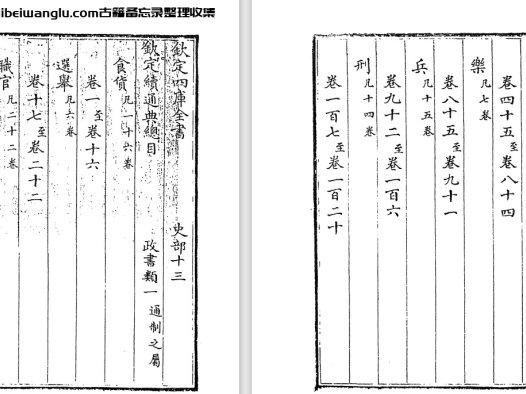 ibeiwanglu.com古籍备忘录整理收集
欽定四庫全書 史部十三
欽定續通典總目 政書類一 通制之屬
食貨 凡一十六卷
卷一至卷十六
選舉 凡六卷
卷十七至卷二十二
職官 凡二十二卷
卷四十五至卷八十四
樂 凡七卷
卷八十五至卷九十一
兵 凡十五卷
卷九十二至卷一百六
刑 凡十四卷
卷一百七至卷一百二十